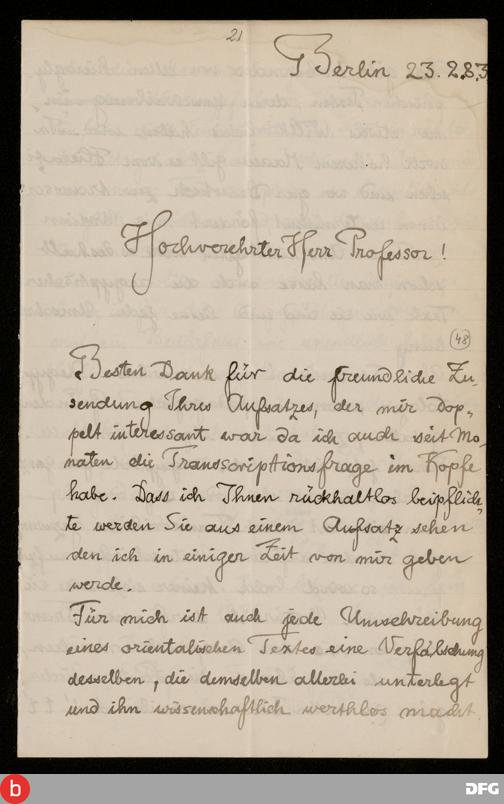 21
Berlin 23.2.83
Hochverehrter Herr Professor!
(48)
Besten Dank für die freundliche Zu-
sendung Ihres Aufsatzes, der mir Dop-
pelt interessant war da ich auch seit Mo-
naten die Transscriptionsfrage im Kopfe
habe. Dass ich Ihnen rückhaltlos beipflich-
te werden Sie aus einem Aufsatz sehen
den ich in einiger Zeit von mir geben
werde.
Für mich ist auch jede Umschreibung
eines orientalischen Textes eine Verfälschung
desselben, die demselben allerlei unterlegt
und ihn wissenschaftlich werthlos macht
b
DFG